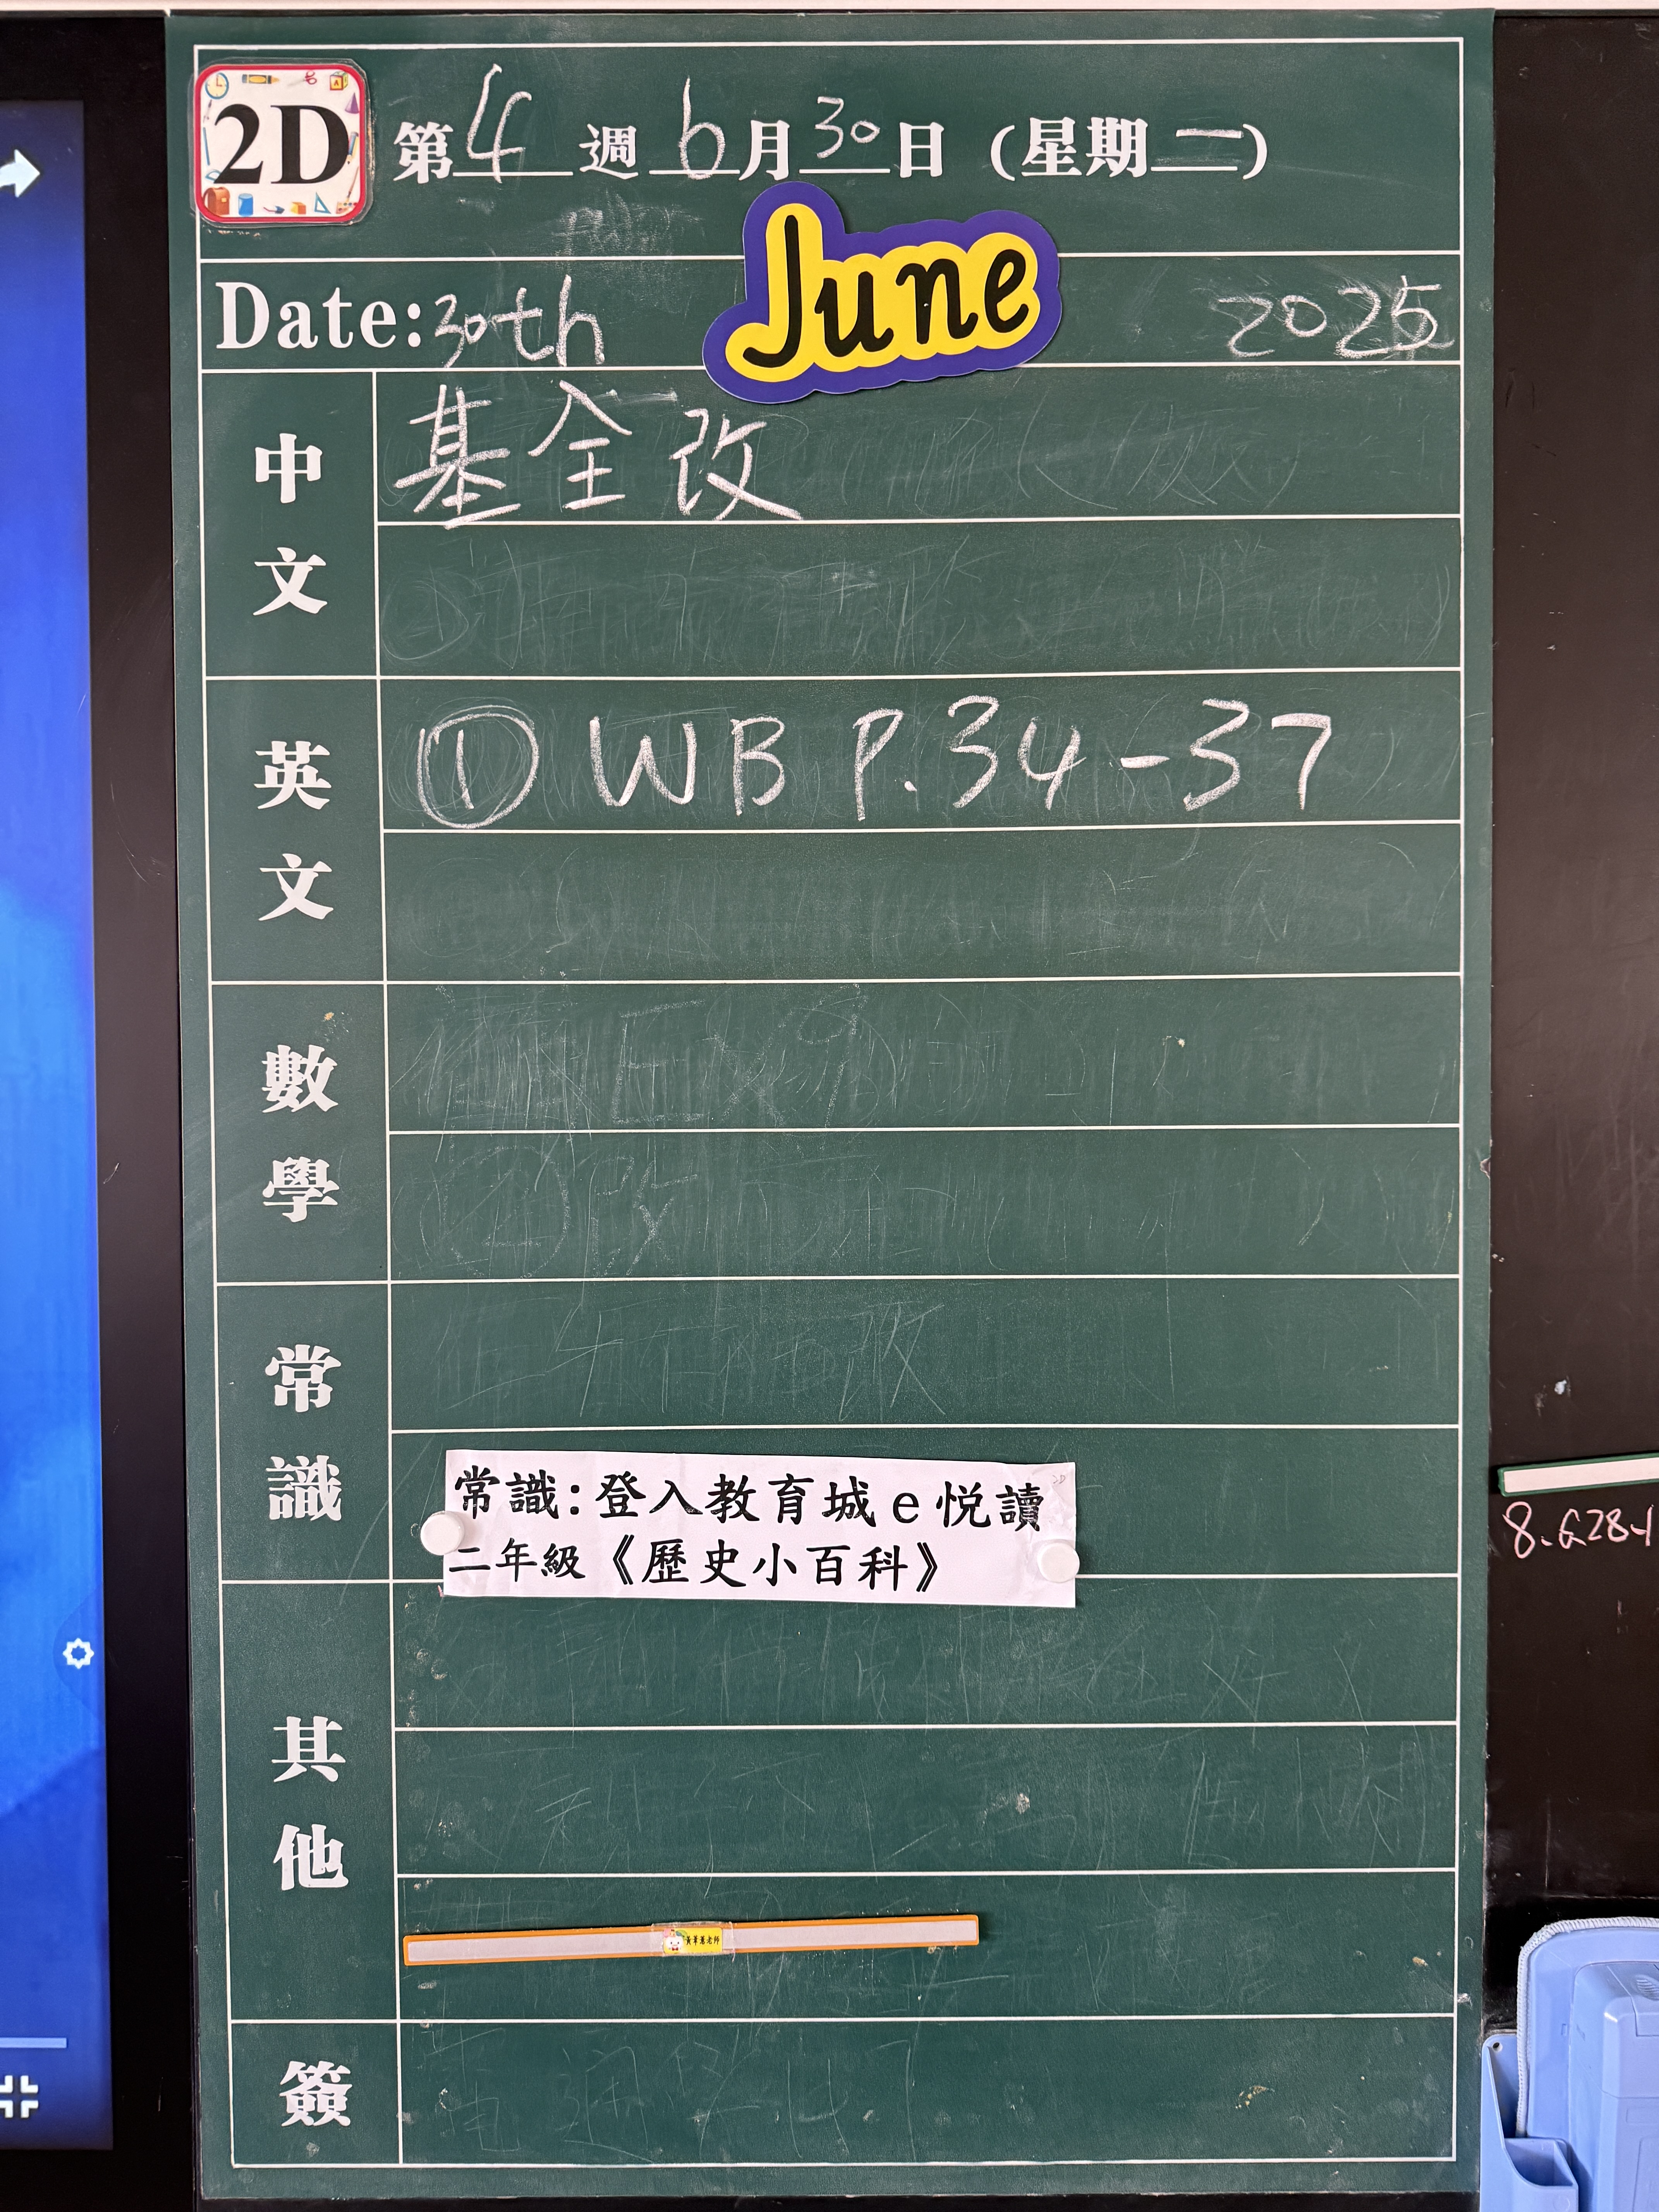 2D 第4週6月30日(星期一)
Date:30th June 2025
中文
基全改
英文
① WB P.34-37
數學
常識
常識:登入教育城e悅讀
二年級《歷史小百科》
其他
簽